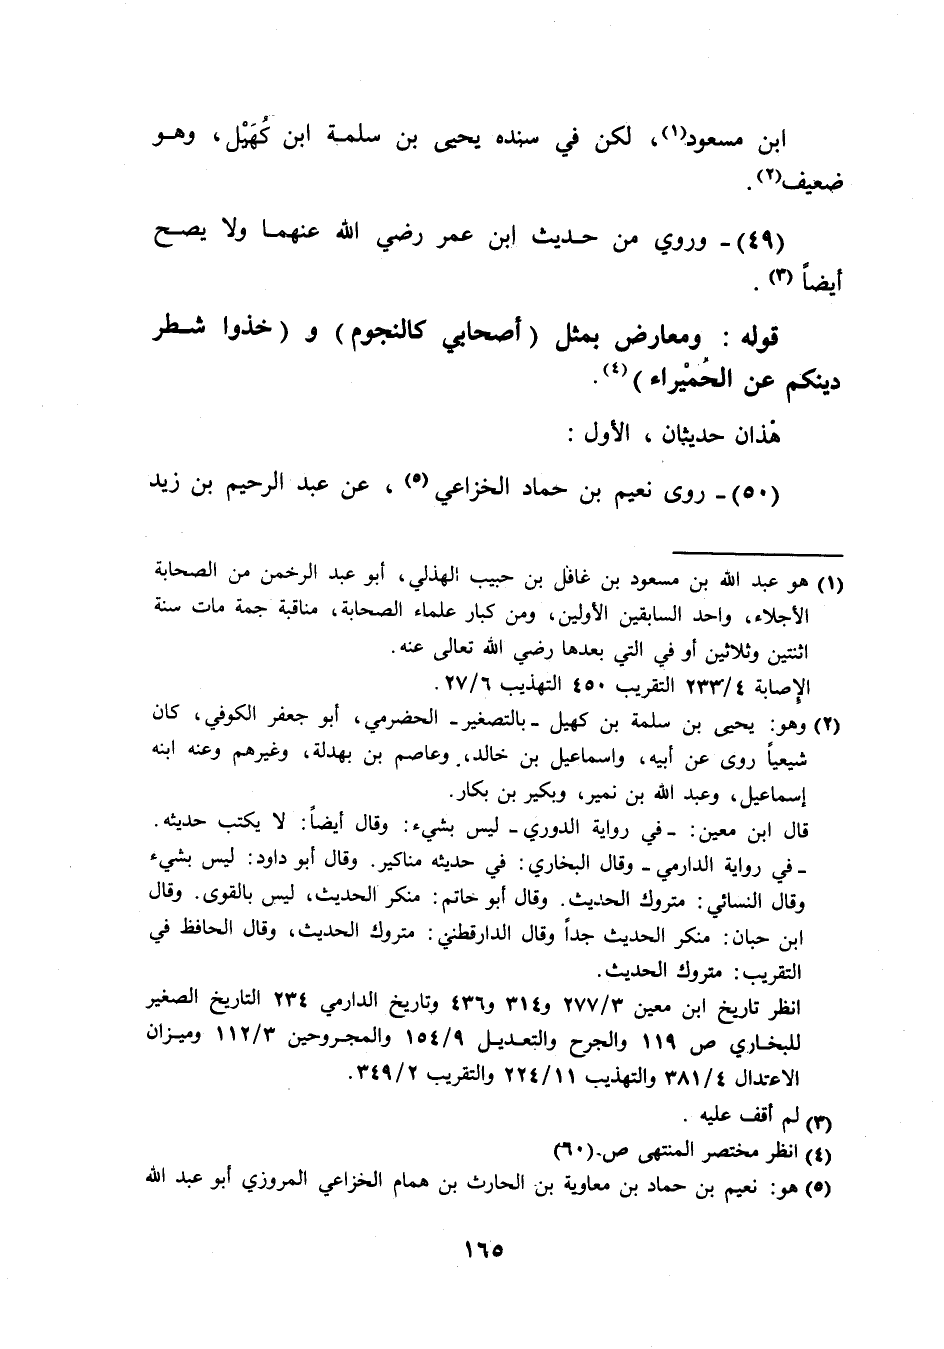 ابن مسعود(١)، لكن في سنده يحيى بن سلمة ابن كُهَيْل، وهو
ضعيف(٢).
(٤٩)ـ وروي من حديث ابن عمر رضي الله عنهما ولا يصح
أيضاً (٣) .
قوله : ومعارض بمثل ( أصحابي كالنجوم ) و ( خذوا شطر
دينكم عن الحُمْيراء )(٤).
هٰذان حديثان ، الأول :
(٥٠)ـ روى نعيم بن حماد الخزاعي(٥) ، عن عبد الرحيم بن زيد
(١) هو عبد الله بن مسعود بن غافل بن حبيب الهذلي، أبو عبد الرحمن من الصحابة
الأجلاء، واحد السابقين الأولين، ومن كبار علماء الصحابة، مناقبة جمة مات سنة
اثنتين وثلاثين أو في التي بعدها رضي الله تعالى عنه.
الإصابة ٢٣٣/٤ التقريب ٤٥٠ التهذيب ٢٧/٦.
(٢) وهو: يحيى بن سلمة بن كهيل ـ بالتصغير ـ الحضرمي، أبو جعفر الكوفي، كان
شيعياً روى عن أبيه، واسماعيل بن خالد، وعاصم بن بهدلة، وغيرهم وعنه ابنه
إسماعيل، وعبد الله بن نمير، وبكير بن بكار.
قال ابن معين: ـ في رواية الدوري ـ ليس بشيء: وقال أيضاً: لا يكتب حديثه.
ـ في رواية الدارمي ـ وقال البخاري: في حديثه مناكير. وقال أبو داود: ليس بشيء
وقال النسائي: متروك الحديث. وقال أبو حاتم: منكر الحديث، ليس بالقوى. وقال
ابن حبان: منكر الحديث جداً وقال الدارقطني: متروك الحديث، وقال الحافظ في
التقريب: متروك الحديث.
انظر تاريخ ابن معين ٢٧٧/٣ و٣١٤ و٤٣٦ وتاريخ الدارمي ٢٣٤ التاريخ الصغير
للبخاري ص ١١٩ والجرح والتعديل ١٥٤/٩ والمجروحين ١١٢/٣ وميزان
الاعتدال ٣٨١/٤ والتهذيب ٢٢٤/١١ والتقريب ٣٤٩/٢.
(٣) لم أقف عليه .
(٤) انظر مختصر المنتهى ص.(٦٠)
(٥) هو: نعيم بن حماد بن معاوية بن الحارث بن همام الخزاعي المروزي أبو عبد الله
١٦٥